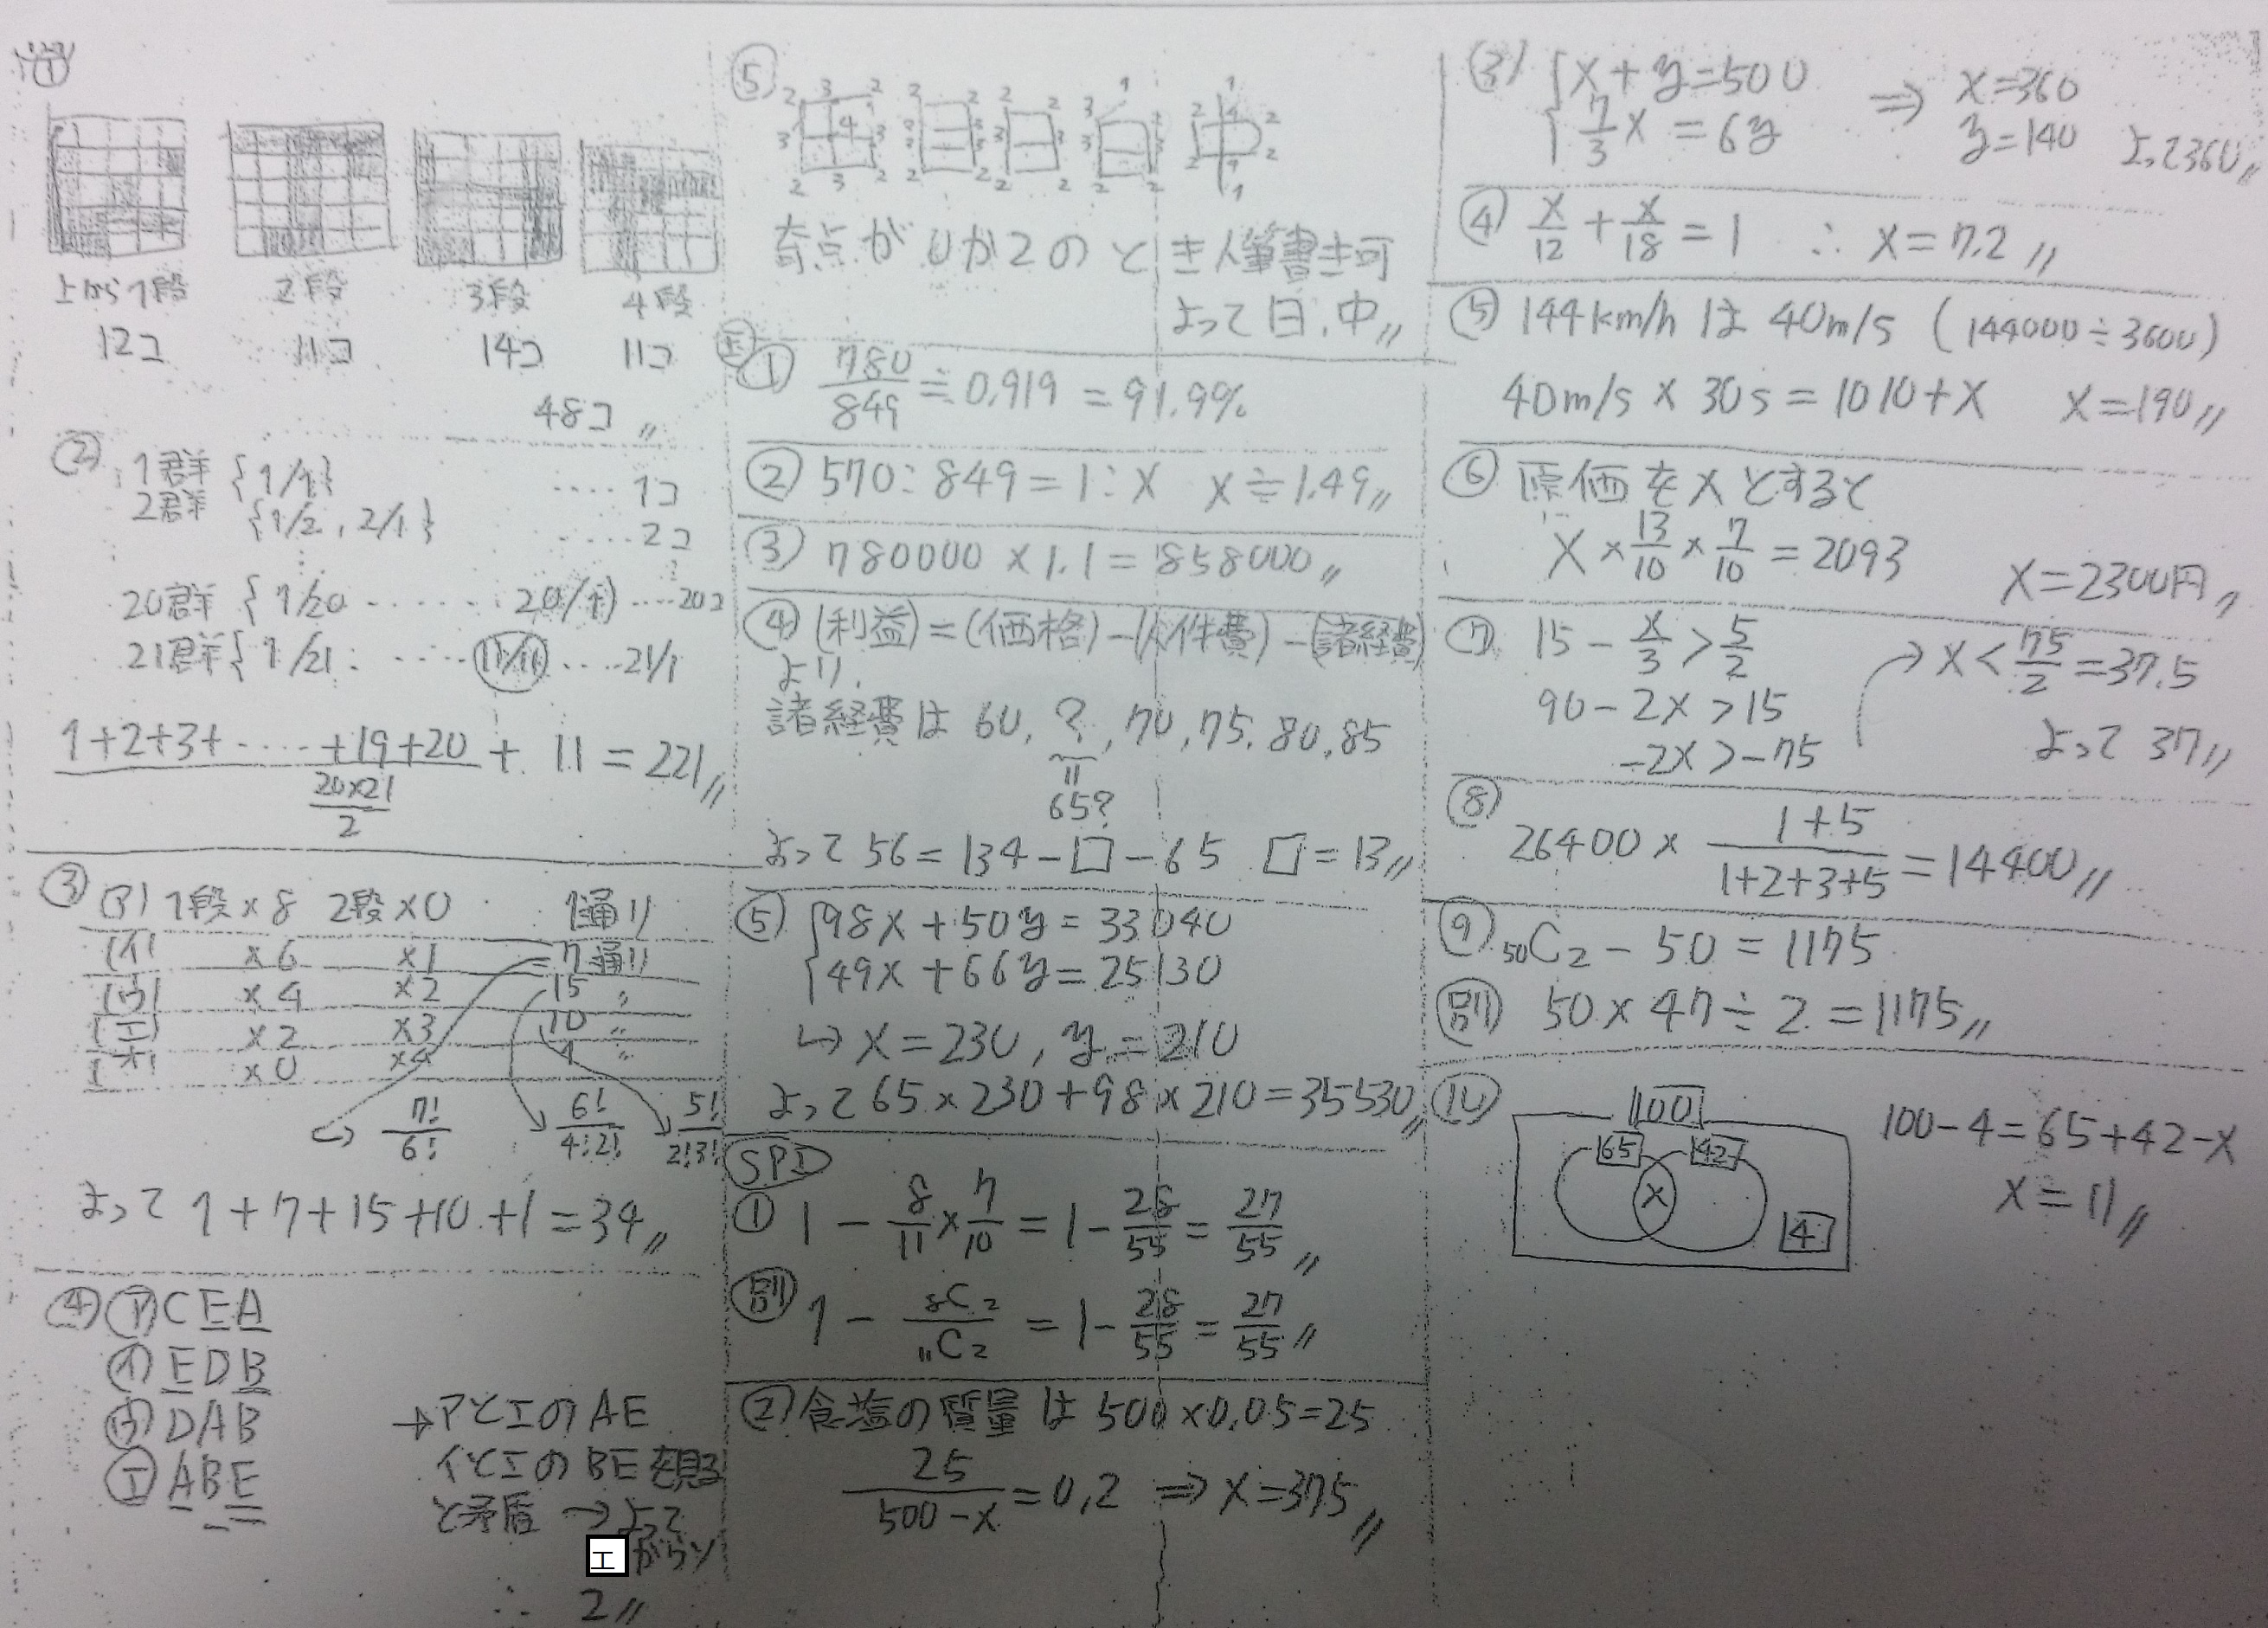 ①
上から1段 2段 3段 4段
12コ 11コ 14コ 11コ
48コ〃
② 1群 {1/1} ‥‥ 1コ
2群 {1/2 , 2/1} ‥‥ 2コ
20群 { 1/20 ‥‥‥ 20/1} ‥‥20コ
21群{ 1/21 ‥‥ 11/11 ‥‥ 21/1
1+2+3+‥‥+19+20 + 11 = 221〃
20×21
2
③ (ア) 1段×8 2段×0 1通り
(イ) ×6 ×1 7通り
(ウ) ×4 ×2 15 〃
(エ) ×2 ×3 10 〃
(オ) ×0 ×4 1 〃
7!/6! 6!/4!2! 5!/2!3!
よって 1+7+15+10+1=34〃
④ ㋐ C E A
㋑ E D B
㋒ D A B
㋓ A B E
→アとエの AE
イとエの BE を見る
と矛盾 →よって
エ がウソ
∴ 2〃
⑤
2 3 2
3 4 3
2 3 2
奇点が 0か2の とき 一筆書き可
よって 日.中〃
① 780/849 ≒ 0.919 = 91.9%
② 570:849=1:x x≒1.49〃
③ 780000×1.1=858000〃
④ (利益)=(価格)-(人件費)-(諸経費)
より.
諸経費は 60, ?, 70, 75, 80, 85
〃
65?
よって 56=134-□-65 □=13〃
⑤ { 98x+50y=33040
49x+66y=25130
↪ x=230, y=210
よって 65×230+98×210=35530〃
SPI
① 1 - 8/11 × 7/10 = 1 - 28/55 = 27/55 〃
別 1 - ₈C₂/₁₁C₂ = 1 - 28/55 = 27/55 〃
② 食塩の質量は 500×0.05=25
25/(500-x) = 0.2 ⇒ x=375〃
(3) { x+y=500 ⇒ x=360
7/3 x = 6y y=140 よって360〃
④ x/12 + x/18 = 1 ∴ x=7.2〃
⑤ 144km/h は 40m/s (144000÷3600)
40m/s × 30s = 1010+x x=190〃
⑥ 原価を x とすると
x × 13/10 × 7/10 = 2093 x=2300円〃
⑦ 15 - x/3 > 5/2 → x < 75/2 = 37.5
90-2x>15
-2x>-75 よって 37〃
⑧ 26400 × (1+5)/(1+2+3+5) = 14400〃
⑨ ₅₀C₂ - 50 = 1175
別 50×47÷2=1175〃
⑩ 100
65 42
x
4
100-4=65+42-x
x=11〃